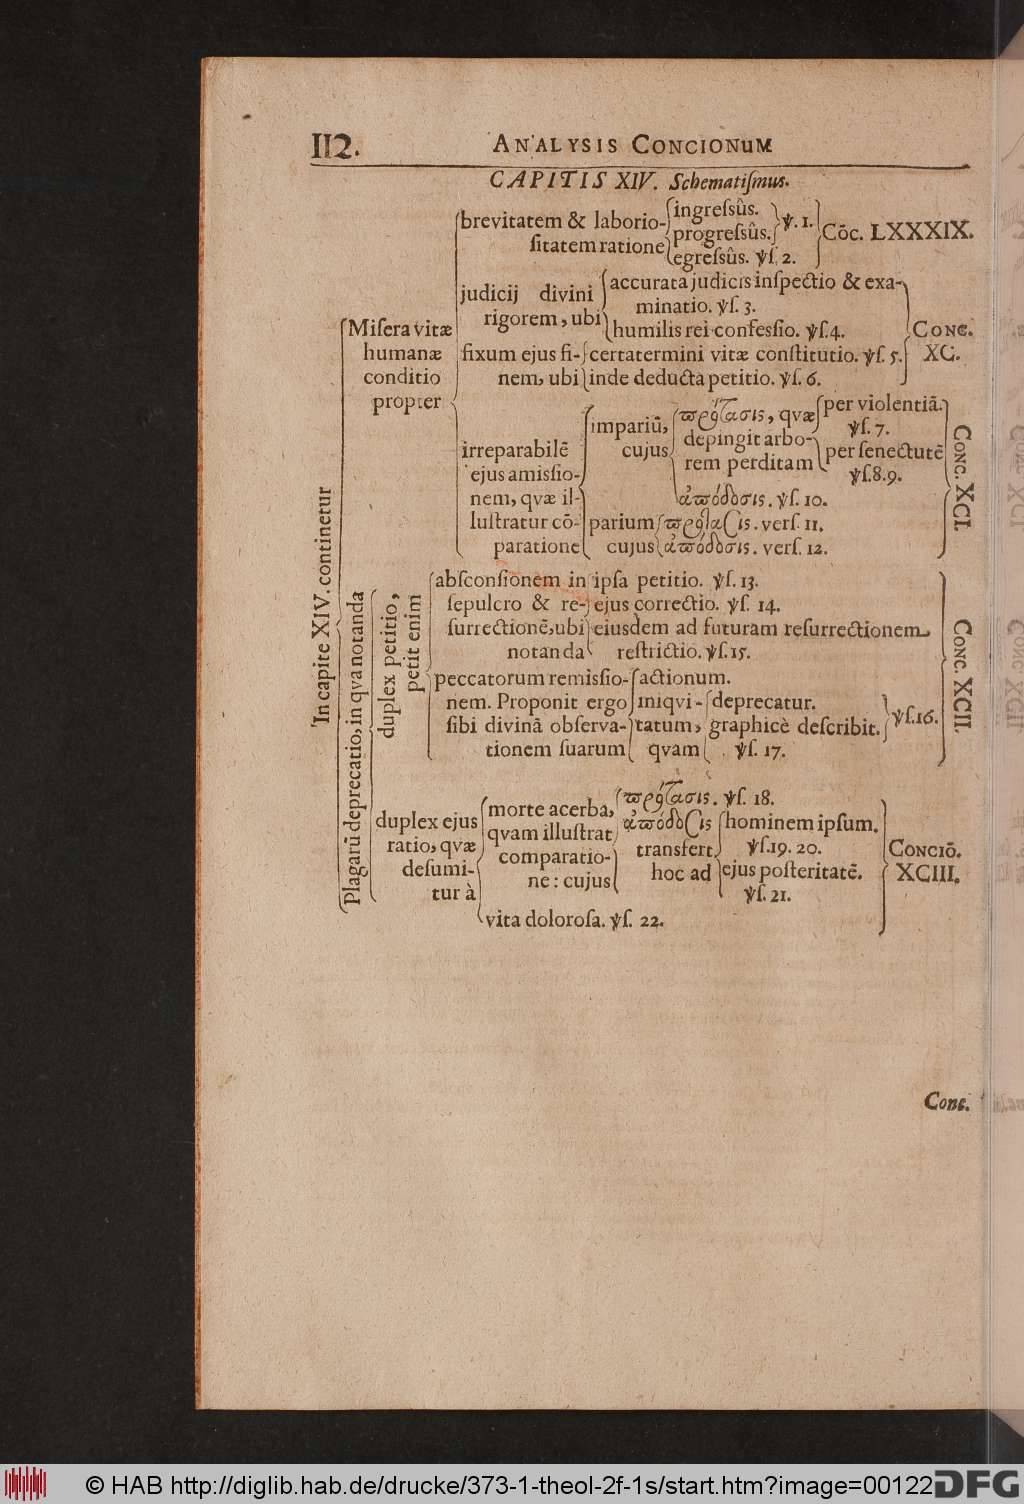 112.
ANALYSIS CONCIONUM
CAPITIS XIV. Schematiſmus.
In capite XIV. continetur
Miſera vitæ
humanæ
conditio
propter
brevitatem & laborio-
ſitatem ratione
ingreſsûs.
progreſsûs.
egreſsûs. ℣ſ. 2.
℣. 1.
Cōc. LXXXIX.
judicij divini
rigorem, ubi
accurata judicis inſpectio & exa-
minatio. ℣ſ. 3.
humilis rei confeſsio. ℣ſ. 4.
fixum ejus fi-
nem, ubi
certa termini vitæ conſtitutio. ℣ſ. 5.
inde deducta petitio. ℣ſ. 6.
CONC.
XC.
irreparabilē
ejus amiſsio-
nem, quæ il-
luſtratur cō-
paratione
impariū,
cujus
πρότασις, qvæ
depingit arbo-
rem perditam
per violentiā.
℣ſ. 7.
per ſenectutē
℣ſ. 8. 9.
ἀπόδοσις. ℣ſ. 10.
parium
cujus
πρότασις. verſ. 11.
ἀπόδοσις. verſ. 12.
CONC. XCI.
Plagarū deprecatio, in qva notanda
duplex petitio,
petit enim
abſconſionem in
ſepulcro & re-
ſurrectionē, ubi
notanda
ipſa petitio. ℣ſ. 13.
ejus correctio. ℣ſ. 14.
eiusdem ad futuram reſurrectionem
reſtrictio. ℣ſ. 15.
peccatorum remiſsio-
nem. Proponit ergo
ſibi divinā obſerva-
tionem ſuarum
actionum.
iniqvi-
tatum,
qvam
deprecatur.
graphicè deſcribit.
℣ſ. 17.
℣ſ. 16.
CONC. XCII.
duplex ejus
ratio, qvæ
deſumi-
tur à
morte acerba,
qvam illuſtrat
comparatio-
ne: cujus
πρότασις. ℣ſ. 18.
ἀπόδοσις
transfert
hoc ad
hominem ipſum.
℣ſ. 19. 20.
ejus poſteritatē.
℣ſ. 21.
vita doloroſa. ℣ſ. 22.
CONCIŌ.
XCIII.
Conc.
© HAB http://diglib.hab.de/drucke/373-1-theol-2f-1s/start.htm?image=00122
DFG